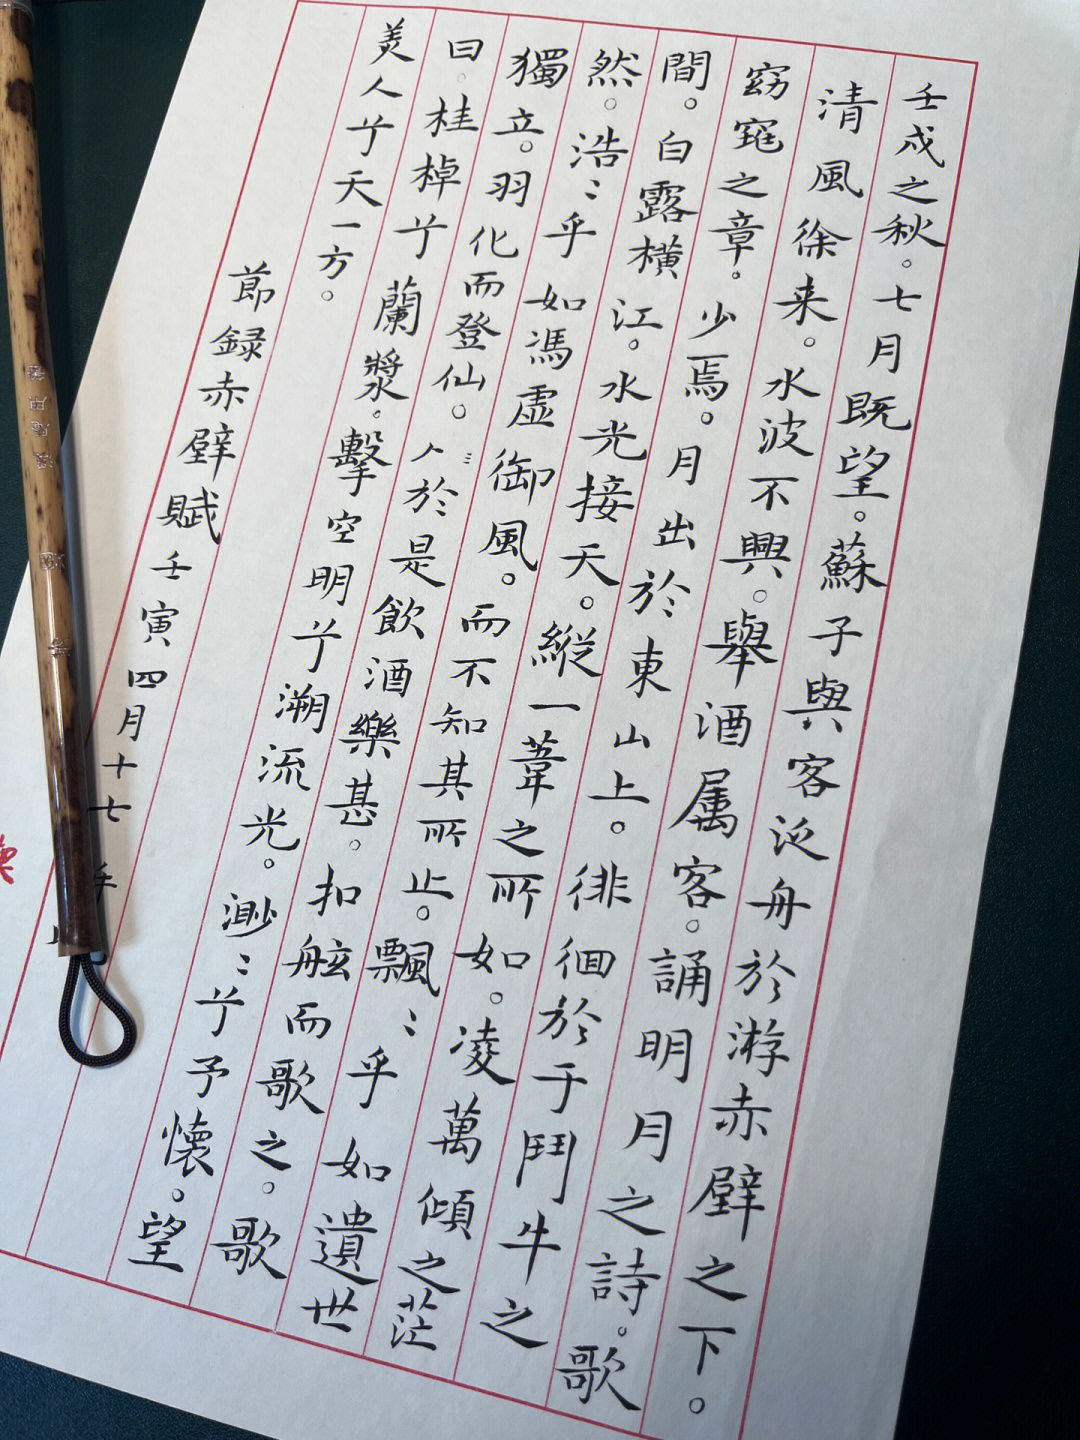 壬戌之秋。七月既望。蘇子與客泛舟於游赤壁之下。
清風徐来。水波不興。舉酒属客。誦明月之詩。歌
窈窕之章。少焉。月出於東山上。徘徊於于鬥牛之
間。白露橫江。水光接天。縱一葦之所如。凌萬傾之茫
然。浩〻乎如馮虚御風。而不知其所止。飄〻乎如遺世
獨立。羽化而登仙。於是飲酒樂甚。扣舷而歌之。歌
曰。桂棹兮蘭漿。擊空明兮溯流光。渺〻兮予懷。望
美人兮天一方。
節録赤壁賦壬寅四月十七